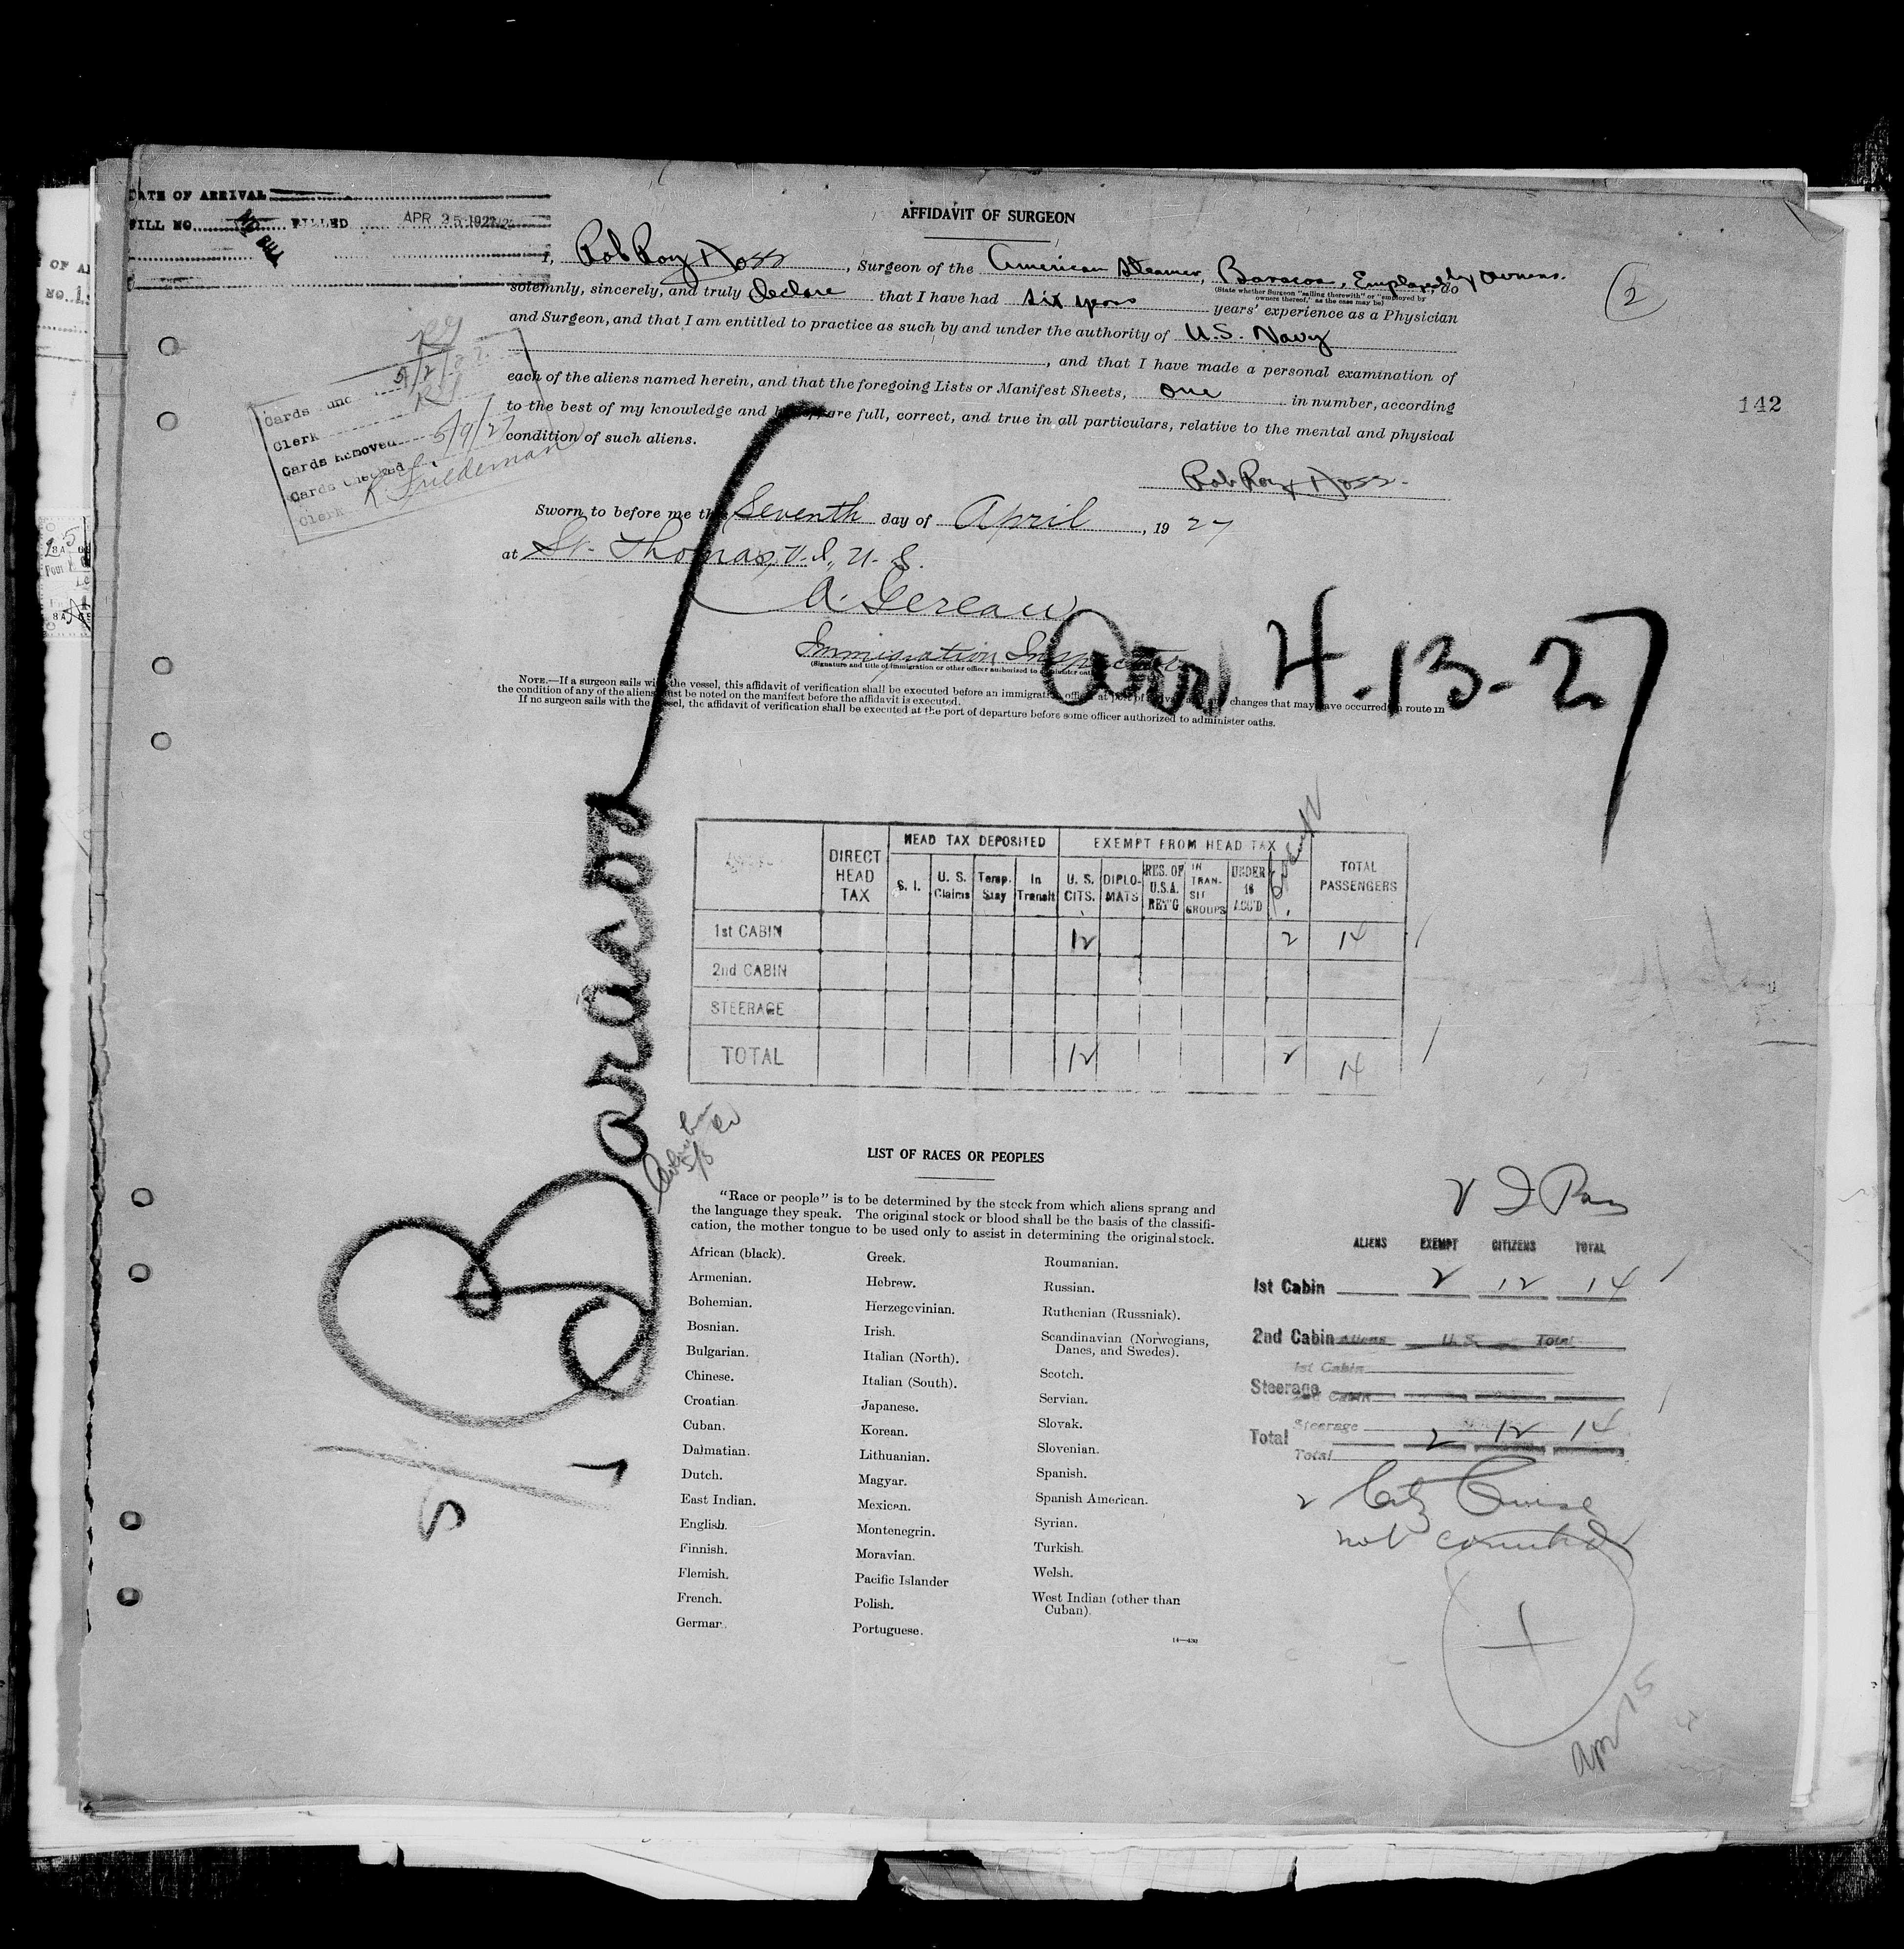 DATE OF ARRIVAL
BILL NO. NO BILL BILLED APR 25 1927
AFFIDAVIT OF SURGEON
I, Rob Roy Hoss, Surgeon of the American Steamer, Baracoa, Employed by owners, do
(State whether Surgeon "sailing therewith" or "employed by
owners thereof," as the case may be)
solemnly, sincerely, and truly declare that I have had six years years' experience as a Physician
and Surgeon, and that I am entitled to practice as such by and under the authority of U.S. Navy
, and that I have made a personal examination of
each of the aliens named herein, and that the foregoing Lists or Manifest Sheets, one in number, according
to the best of my knowledge and belief, are full, correct, and true in all particulars, relative to the mental and physical
condition of such aliens.
2
142
Clerk
Cards Removed 5/9/27
Cards Checked
Clerk K Friedeman
Rob Roy Hoss.
Sworn to before me this Seventh day of April, 1927
at St. Thomas, V.I., U.S.
A. Gereau
Immigration Inspector
(Signature and title of immigration or other officer authorized to administer oaths)
NOTE.—If a surgeon sails with the vessel, this affidavit of verification shall be executed before an immigration officer at port of arrival and any changes that may have occurred in route in
the condition of any of the aliens must be noted on the manifest before the affidavit is executed.
If no surgeon sails with the vessel, the affidavit of verification shall be executed at the port of departure before some officer authorized to administer oaths.
Arr 4-13-27
S/S Baracoa
DIRECT HEAD TAX
HEAD TAX DEPOSITED
EXEMPT FROM HEAD TAX
TOTAL PASSENGERS
S. I. U. S. Claims Temp. Stay In Transit U. S. CITS. DIPLOMATS RES. OF U.S.A. RET'G IN TRANSIT GROUPS UNDER 16 ACC'D
1st CABIN 12 2 14
2nd CABIN
STEERAGE
TOTAL 12 2 14
LIST OF RACES OR PEOPLES
"Race or people" is to be determined by the stock from which aliens sprang and
the language they speak. The original stock or blood shall be the basis of the classifi-
cation, the mother tongue to be used only to assist in determining the original stock.
African (black).
Armenian.
Bohemian.
Bosnian.
Bulgarian.
Chinese.
Croatian.
Cuban.
Dalmatian.
Dutch.
East Indian.
English.
Finnish.
Flemish.
French.
German.
Greek.
Hebrew.
Herzegovinian.
Irish.
Italian (North).
Italian (South).
Japanese.
Korean.
Lithuanian.
Magyar.
Mexican.
Montenegrin.
Moravian.
Pacific Islander
Polish.
Portuguese.
Roumanian.
Russian.
Ruthenian (Russniak).
Scandinavian (Norwegians,
Danes, and Swedes).
Scotch.
Servian.
Slovak.
Slovenian.
Spanish.
Spanish American.
Syrian.
Turkish.
Welsh.
West Indian (other than
Cuban).
ALIENS EXEMPT CITIZENS TOTAL
1st Cabin 2 12 14
2nd Cabin Aliens U. S. Total
1st Cabin
Steerage 2nd Cabin
Steerage
Total 2 12 14
Total
2 Citz Cruise
not counted
Apr 15